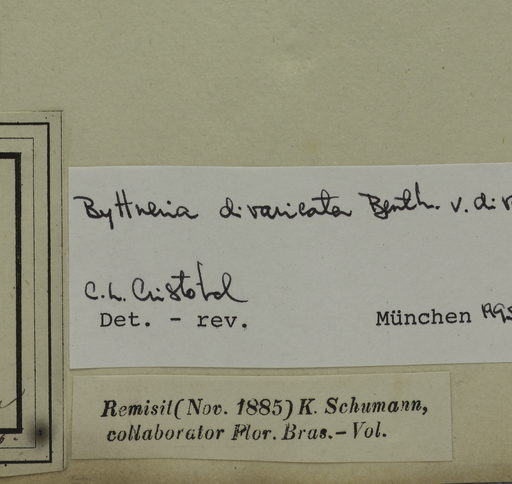 Byttneria divaricata Benth. v. div
C.L. Cristóbal
Det. - rev.
München 195
Remisit (Nov. 1885) K. Schumann,
collaborator Flor. Bras. – Vol.